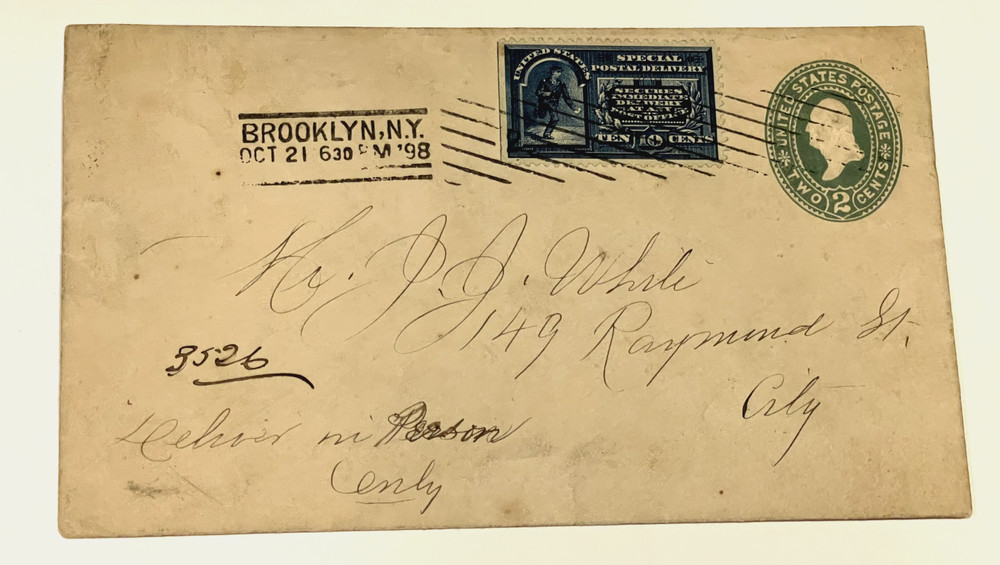 UNITED STATES
SPECIAL
POSTAL DELIVERY
SECURES
IMMEDIATE
DELIVERY
AT ANY
POST OFFICE
TEN 10 CENTS
UNITED STATES POSTAGE
TWO 2 CENTS
BROOKLYN, N.Y.
OCT 21 630 PM '98
Mr. J. J. White
149 Raymond St.
City
3526
Deliver in Person
Only